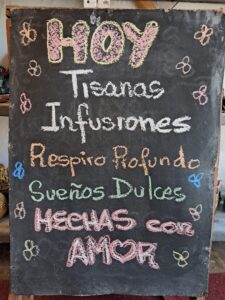 HOY
Tisanas
Infusiones
Respiro Profundo
Sueños Dulces
HECHAS con
AMOR